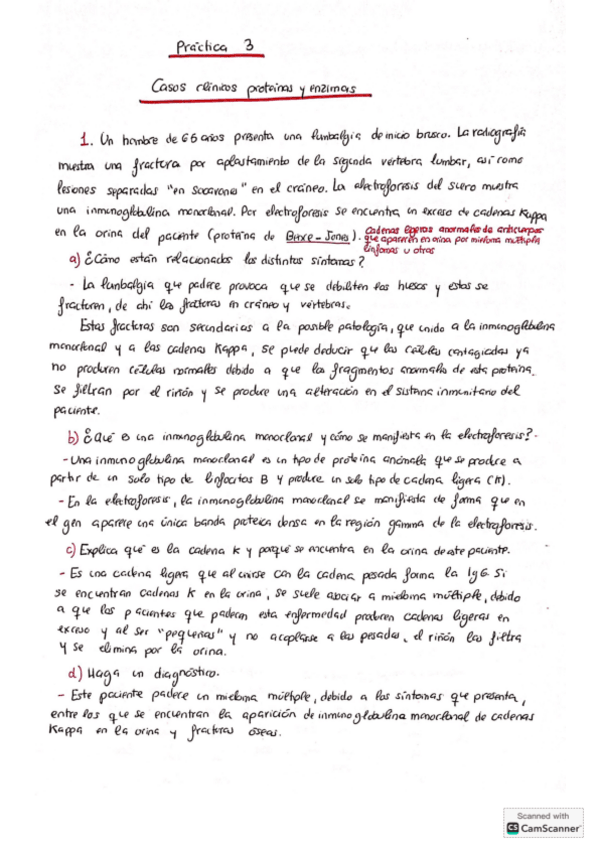 Práctica 3
Casos clínicos proteinas y enzimas
1. Un hombre de 65 años presenta una lumbalgia de inicio brusco. La radiografía
muestra una fractura por aplastamiento de la segunda vertebra lumbar, así como
lesiones separadas "en socavones" en el cráneo. La electroforesis del suero muestra
una inmunoglobulina monoclonal. Por electroforesis se encuentra un exceso de cadenas Kappa
en la orina del paciente (proteína de Bence-Jones). cadenas ligeras anormales de anticuerpos
que aparecen en orina por mieloma múltiple
linfomas u otros
a) ¿Cómo están relacionados los distintos síntomas?
- La lumbalgia que padece provoca que se debiliten los huesos y estos se
fracturen, de ahi las fracturas en cráneo y vértebras.
Estas fracturas son secundarias a la posible patología, que unido a la inmunoglobulina
monoclonal y a las cadenas Kappa, se puede deducir que las células contagiadas ya
no producen células normales debido a que los fragmentos anormales de esta proteína.
Se filtran por el riñón y se produce una alteración en el sistema inmunitario del
paciente.
b) ¿Qué es una inmunoglobulina monoclonal y cómo se manifiesta en la electroforesis?.
- Una inmunoglobulina monoclonal es un tipo de proteína anómala que se produce a
partir de un solo tipo de linfocitos B y produce un solo tipo de cadena ligera (K).
- En la electroforesis, la inmunoglobulina monoclonal se manifiesta de forma que en
el gen aparece una única banda proteica densa en la región gamma de la electroforesis.
c) Explica qué es la cadena K y porqué se encuentra en la orina de este paciente.
- Es una cadena ligera que al unirse con la cadena pesada forma la IgG. Si
se encuentran cadenas K en la orina, se suele asociar a mieloma múltiple, debido
a que los pacientes que padecen esta enfermedad producen cadenas ligeras en
exceso y al ser "pequeñas" y no acoplarse a las pesadas, el riñón las filtra
y se elimina por la orina.
d) Haga un diagnóstico.
- Este paciente padece un mieloma múltiple, debido a los síntomas que presenta,
entre los que se encuentran la aparición de inmunoglobulina monoclonal de cadenas
Kappa en la orina y fracturas óseas.
Scanned with
CS CamScanner